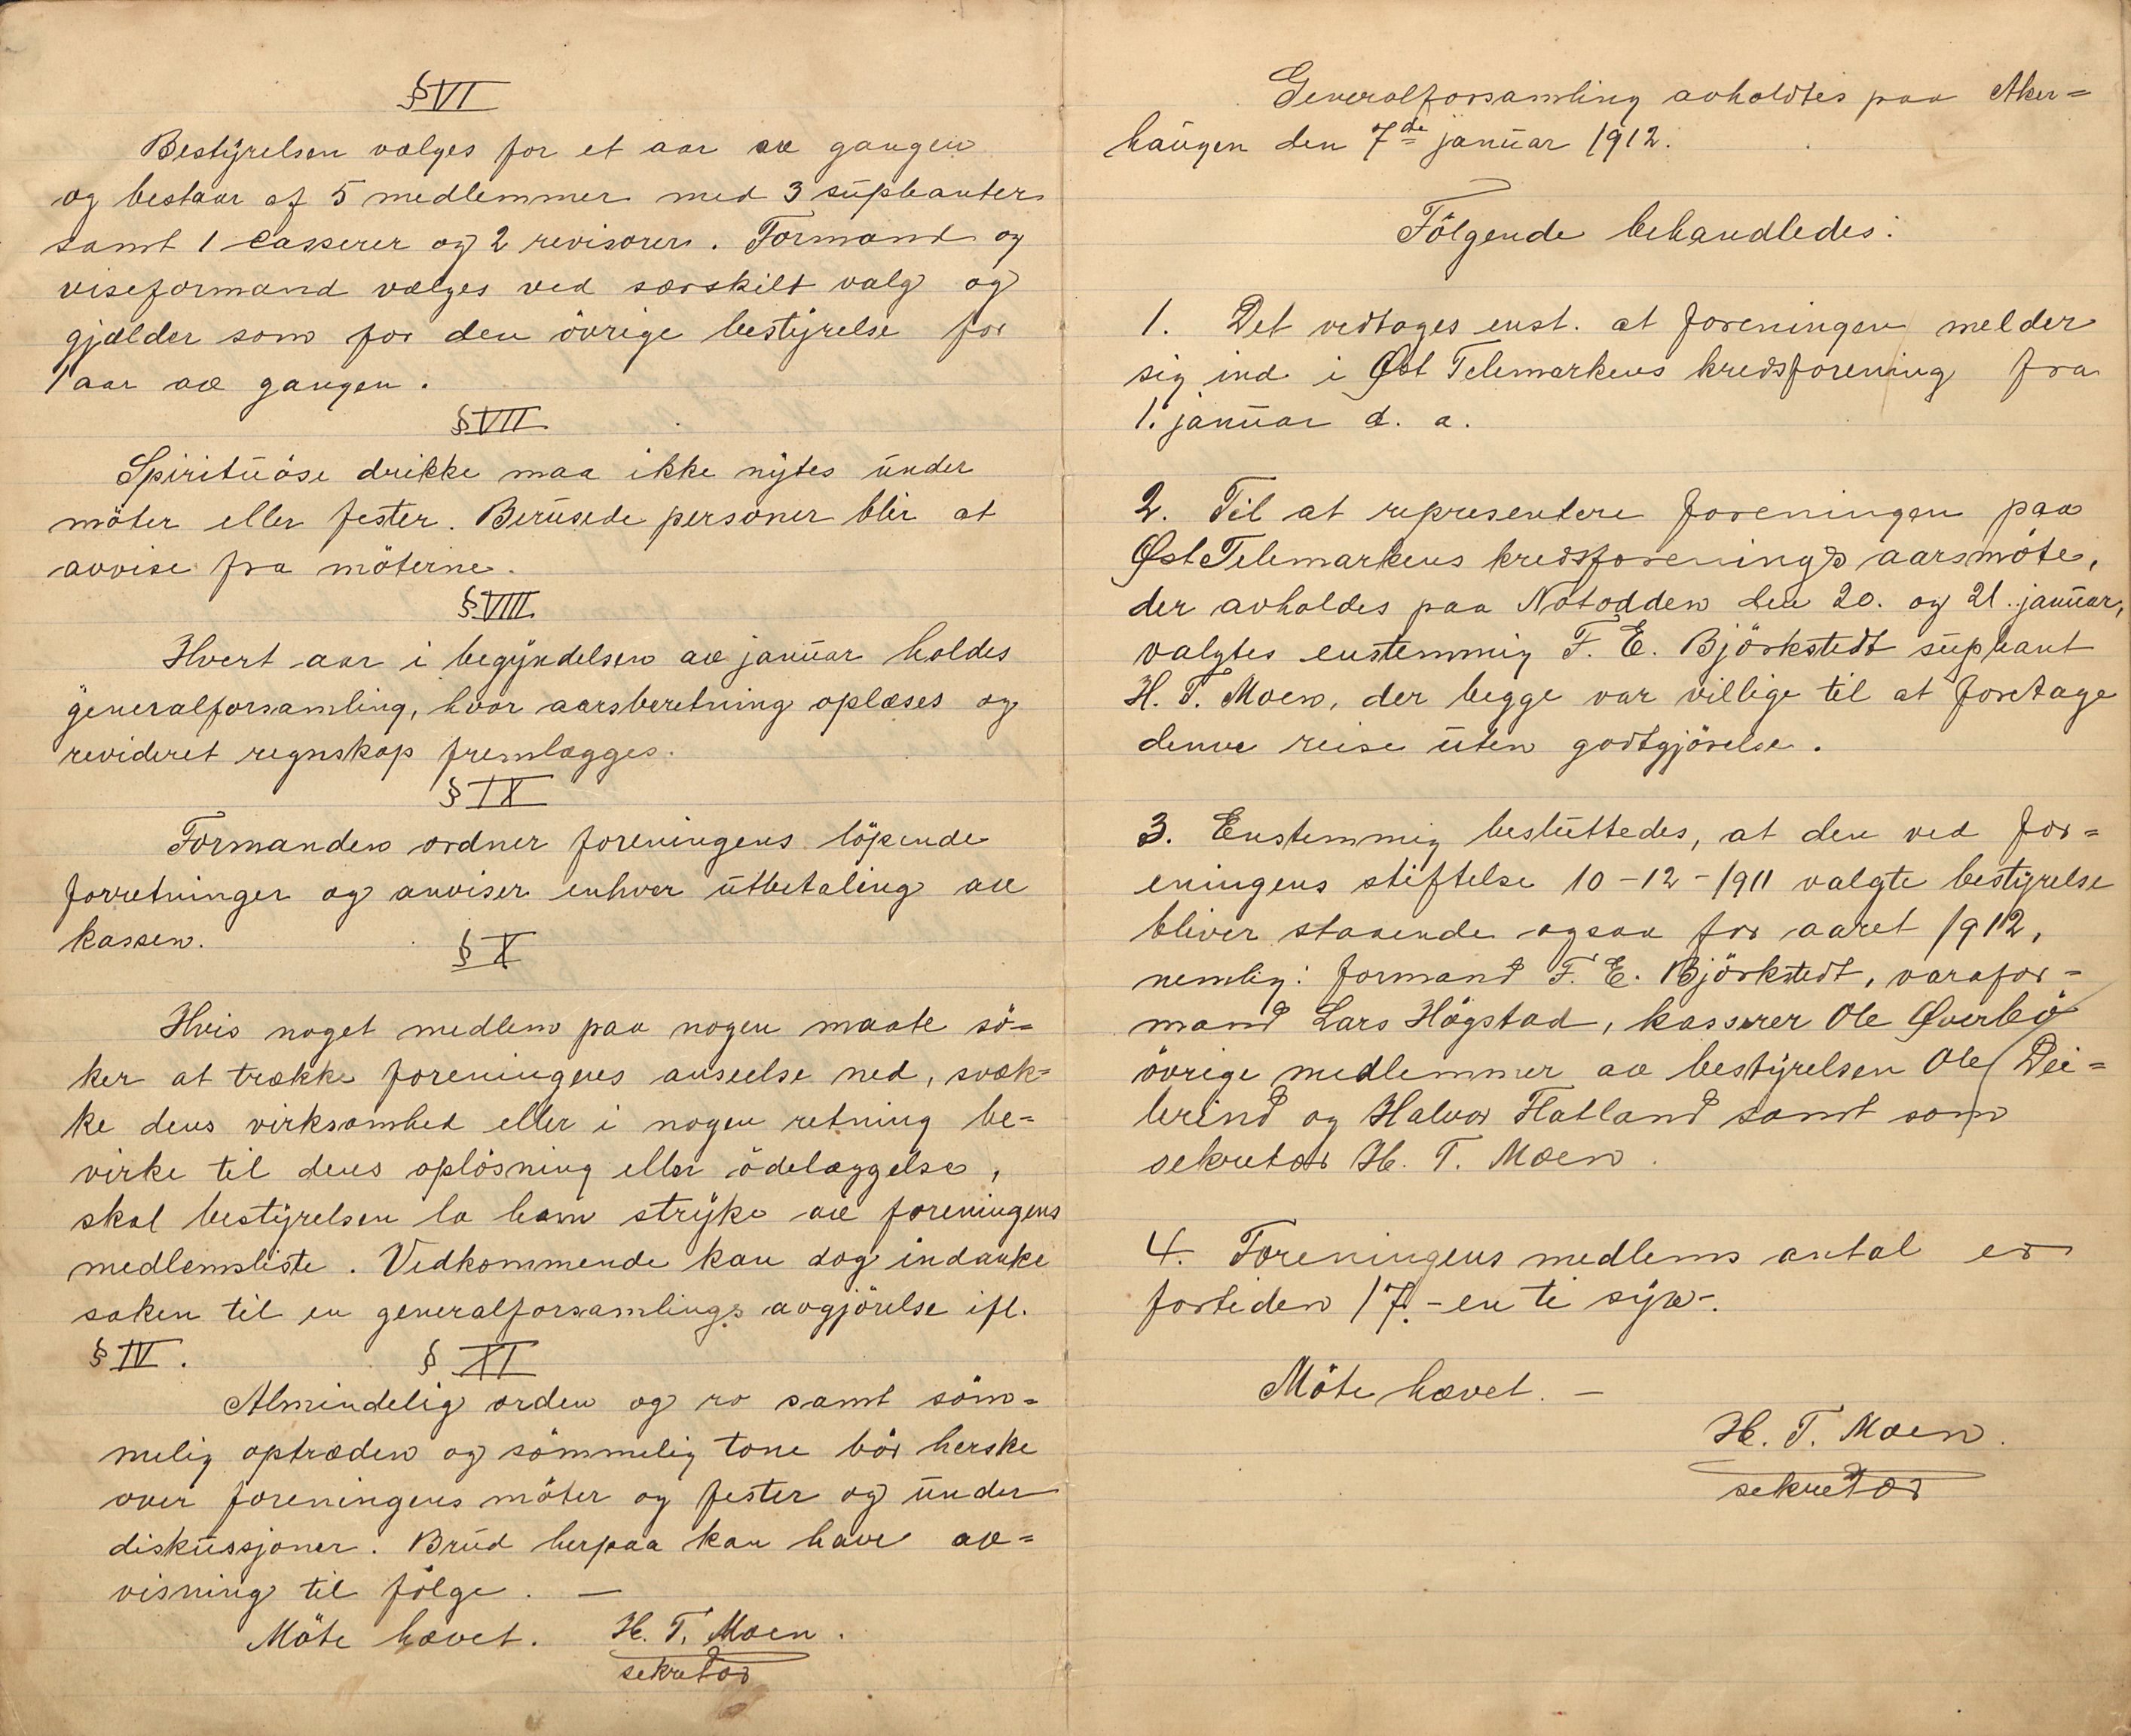 § VI
Bestyrelsen vælges for et aar av gangen
og bestaar af 5 medlemmer med 3 supleanter
samt 1 casserer og 2 revisorer. Formand og
viseformand vælges ved særskilt valg og
gjælder som for den övrige bestyrelse for
1 aar av gangen.
§ VII
Spirituöse drikke maa ikke nytes under
möter eller fester. Berusede personer blir at
avvise fra möterne.
§ VIII
Hvert aar i begyndelsen av januar holdes
generalforsamling, hvor aarsberetning oplæses og
revideret regnskap fremlægges.
§ IX
Formanden ordner foreningens löpende
forretninger og anviser enhver utbetaling av
kassen.
§ X
Hvis noget medlem paa nogen maate sö=
ker at trække foreningens anseelse ned, svæk=
ke dens virksomhed eller i nogen retning be=
virke til dens oplösning eller ödelæggelse,
skal bestyrelsen la ham stryke av foreningens
medlemsliste. Vedkommende kan dog indanke
saken til en generalforsamlings avgjörelse ifl.
§ IV.
§ XI
Almindelig orden og ro samt söm=
melig optræden og sömmelig tone bör herske
over foreningens möter og fester og under
diskussjoner. Brud herpaa kan have av=
visning til fölge. —
Möte hævet. H. T. Moen.
sekretær
Generalforsamling avholdtes paa Aker=
haugen den 7de januar 1912.
Fölgende behandledes:
1. Det vedtoges enst. at foreningen melder
sig ind i Øst Telemarkens kredsforening fra
1. januar d. a.
2. Til at representere foreningen paa
Øst Telemarkens kredsforenings aarsmöte,
der avholdes paa Notodden den 20. og 21. januar,
valgtes enstemmig F. E. Björkstedt supleant
H. T. Moen, der begge var villige til at foretage
denne reise uten godtgjörelse.
3. Enstemmig besluttedes, at den ved for=
eningens stiftelse 10-12-1911 valgte bestyrelse
bliver staaende ogsaa for aaret 1912,
nemlig: formand F. E. Björkstedt, varafor=
mand Lars Högstad, kasserer Ole Øverbö
övrige medlemmer av bestyrelsen Ole Dei=
brind og Halvor Flatland samt som
sekretær H. T. Moen.
4. Foreningens medlems antal er
fortiden 17. - en ti syv -.
Möte hævet. —
H. T. Moen.
sekretær